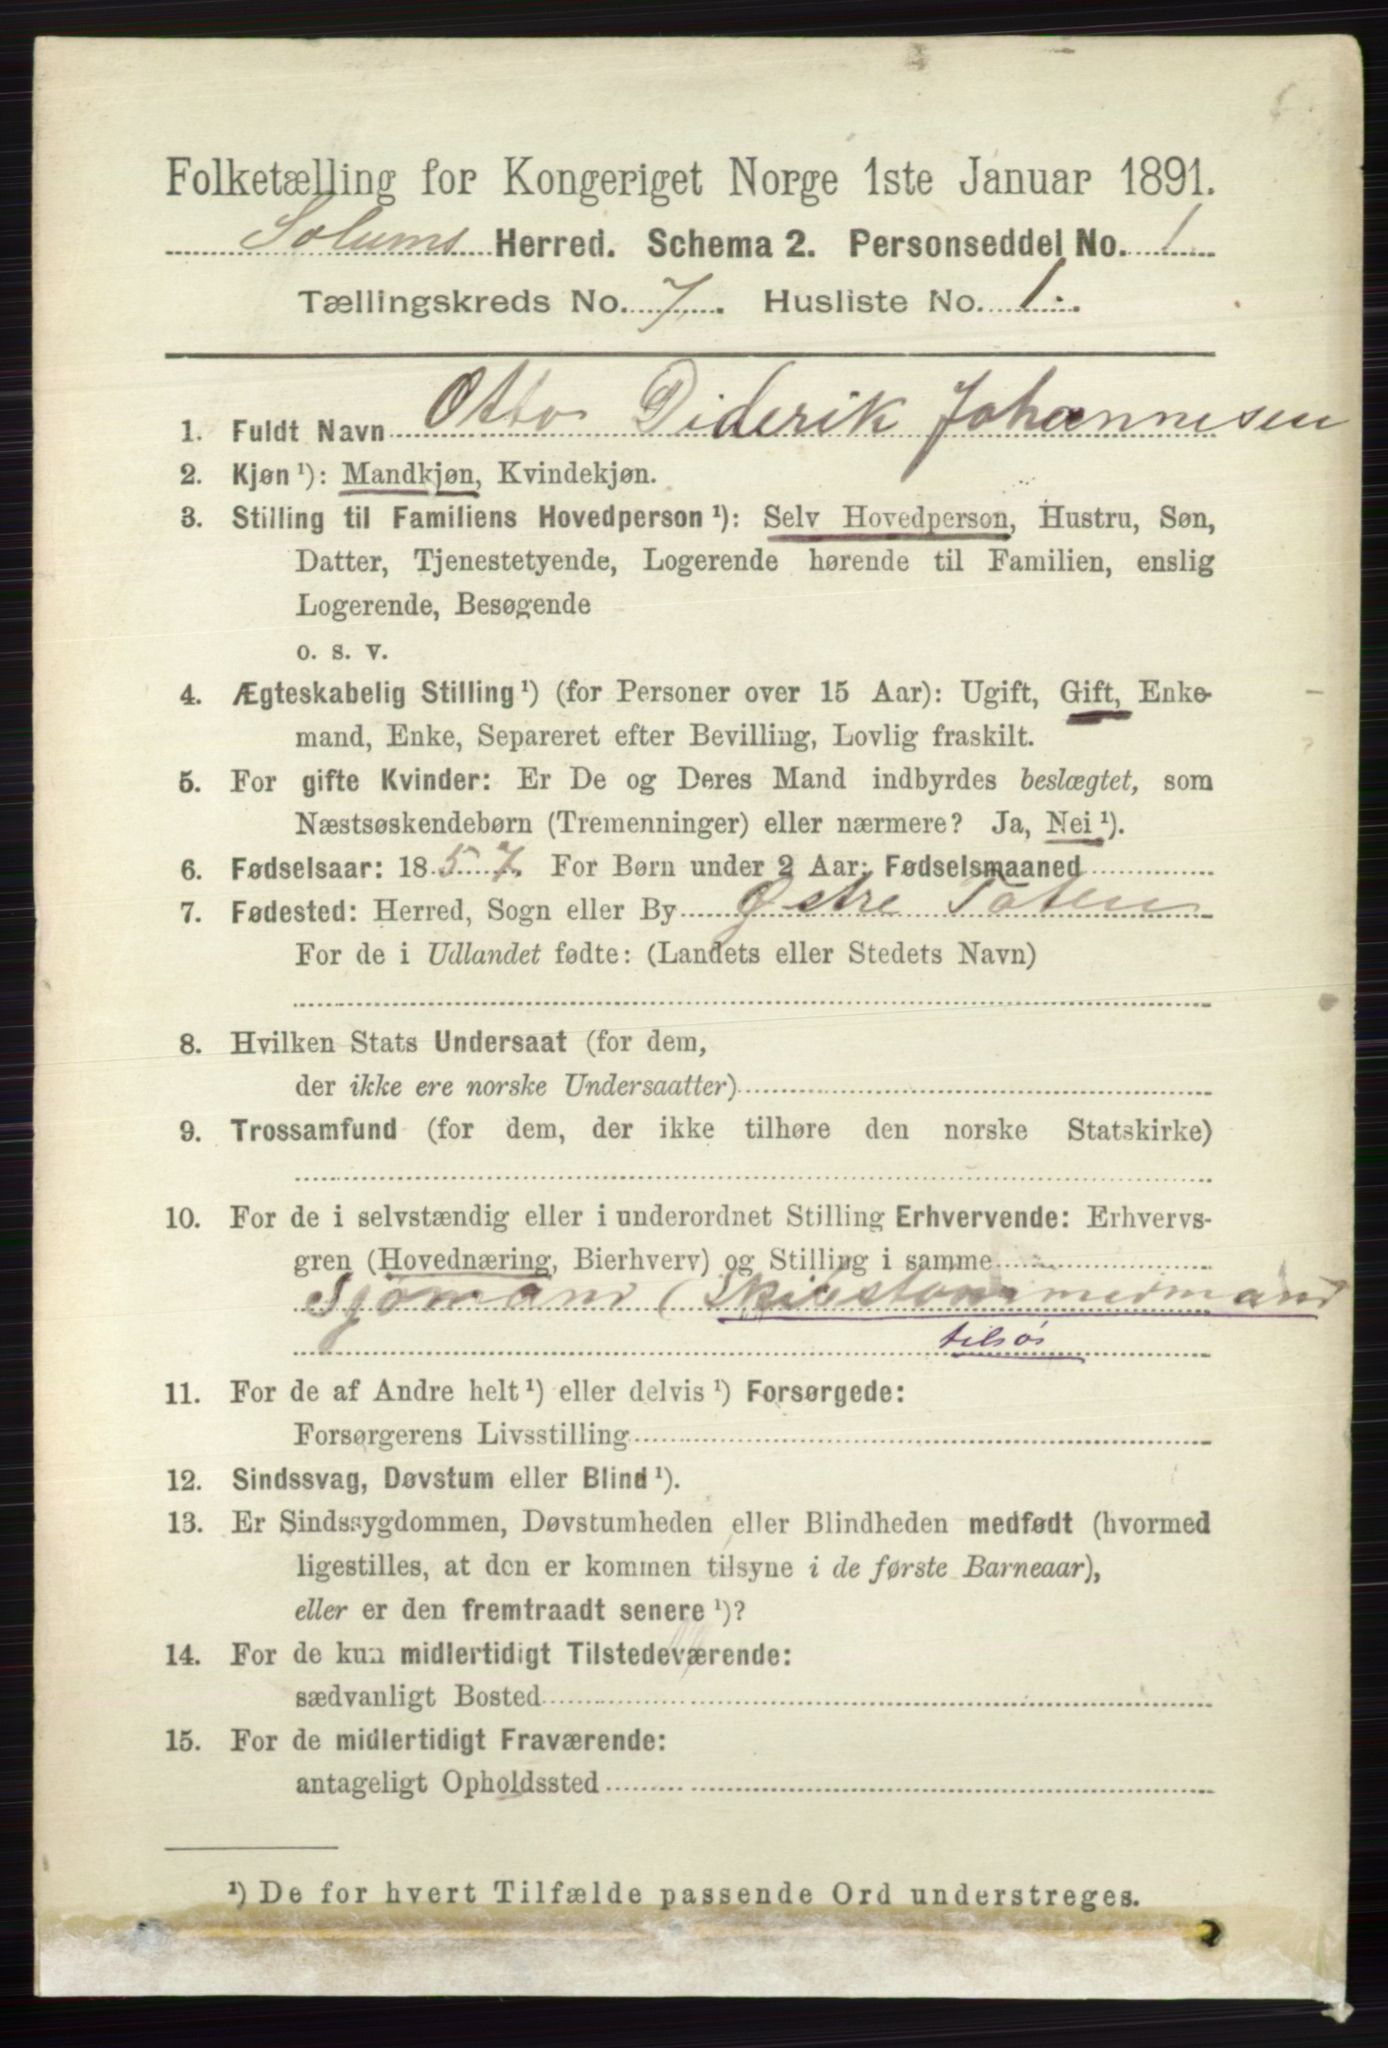 Folketælling for Kongeriget Norge 1ste Januar 1891.
Solums Herred. Schema 2. Personseddel No. 1
Tællingskreds No. 7. Husliste No. 1.
1. Fuldt Navn Otto Diderik Johannesen
2. Kjøn ¹): Mandkjøn, Kvindekjøn.
3. Stilling til Familiens Hovedperson ¹): Selv Hovedperson, Hustru, Søn,
Datter, Tjenestetyende, Logerende hørende til Familien, enslig
Logerende, Besøgende
o. s. v.
4. Ægteskabelig Stilling ¹) (for Personer over 15 Aar): Ugift, Gift, Enke-
mand, Enke, Separeret efter Bevilling, Lovlig fraskilt.
5. For gifte Kvinder: Er De og Deres Mand indbyrdes beslægtet, som
Næstsøskendebørn (Tremenninger) eller nærmere? Ja, Nei ¹).
6. Fødselsaar: 1857. For Børn under 2 Aar: Fødselsmaaned
7. Fødested: Herred, Sogn eller By Østre Toten
For de i Udlandet fødte: (Landets eller Stedets Navn)
8. Hvilken Stats Undersaat (for dem,
der ikke ere norske Undersaatter)
9. Trossamfund (for dem, der ikke tilhøre den norske Statskirke)
10. For de i selvstændig eller i underordnet Stilling Erhvervende: Erhvervs-
gren (Hovednæring, Bierhverv) og Stilling i samme
Sjømand (Skibstømmermand
tilsøs
11. For de af Andre helt ¹) eller delvis ¹) Forsørgede:
Forsørgerens Livsstilling
12. Sindssvag, Døvstum eller Blind ¹).
13. Er Sindssygdommen, Døvstumheden eller Blindheden medfødt (hvormed
ligestilles, at den er kommen tilsyne i de første Barneaar),
eller er den fremtraadt senere ¹)?
14. For de kun midlertidigt Tilstedeværende:
sædvanligt Bosted
15. For de midlertidigt Fraværende:
antageligt Opholdssted
¹) De for hvert Tilfælde passende Ord understreges.